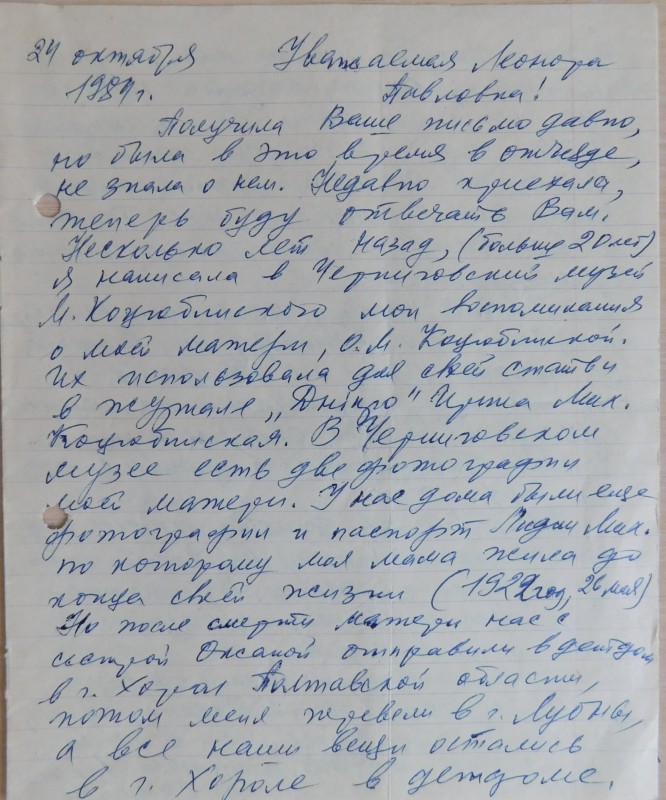 24 октября Уважаемая Леонора
1984г. Павловна!
Получила Ваше письмо давно,
но была в это время в отъезде,
не знала о нем. Недавно приехала,
теперь буду отвечать Вам.
Несколько лет назад, (больше 20 лет)
я написала в Черниговский музей
М. Коцюбинского мои воспоминания
о моей матери, О.М. Коцюбинской.
Их использовала для своей статьи
в журнале „Дніпро" Ирина Мих.
Коцюбинская. В Черниговском
музее есть две фотографии
моей матери. У нас дома были еще
фотографии и паспорт Лидии Мих.
по которому моя мама жила до
конца своей жизни (1922год, 26 мая)
Но после смерти матери нас с
сестрой Оксаной отправили в детдом
в г. Хорол Полтавской области,
потом меня перевели в г. Лубны,
а все наши вещи остались
в г. Хороле в детдоме.